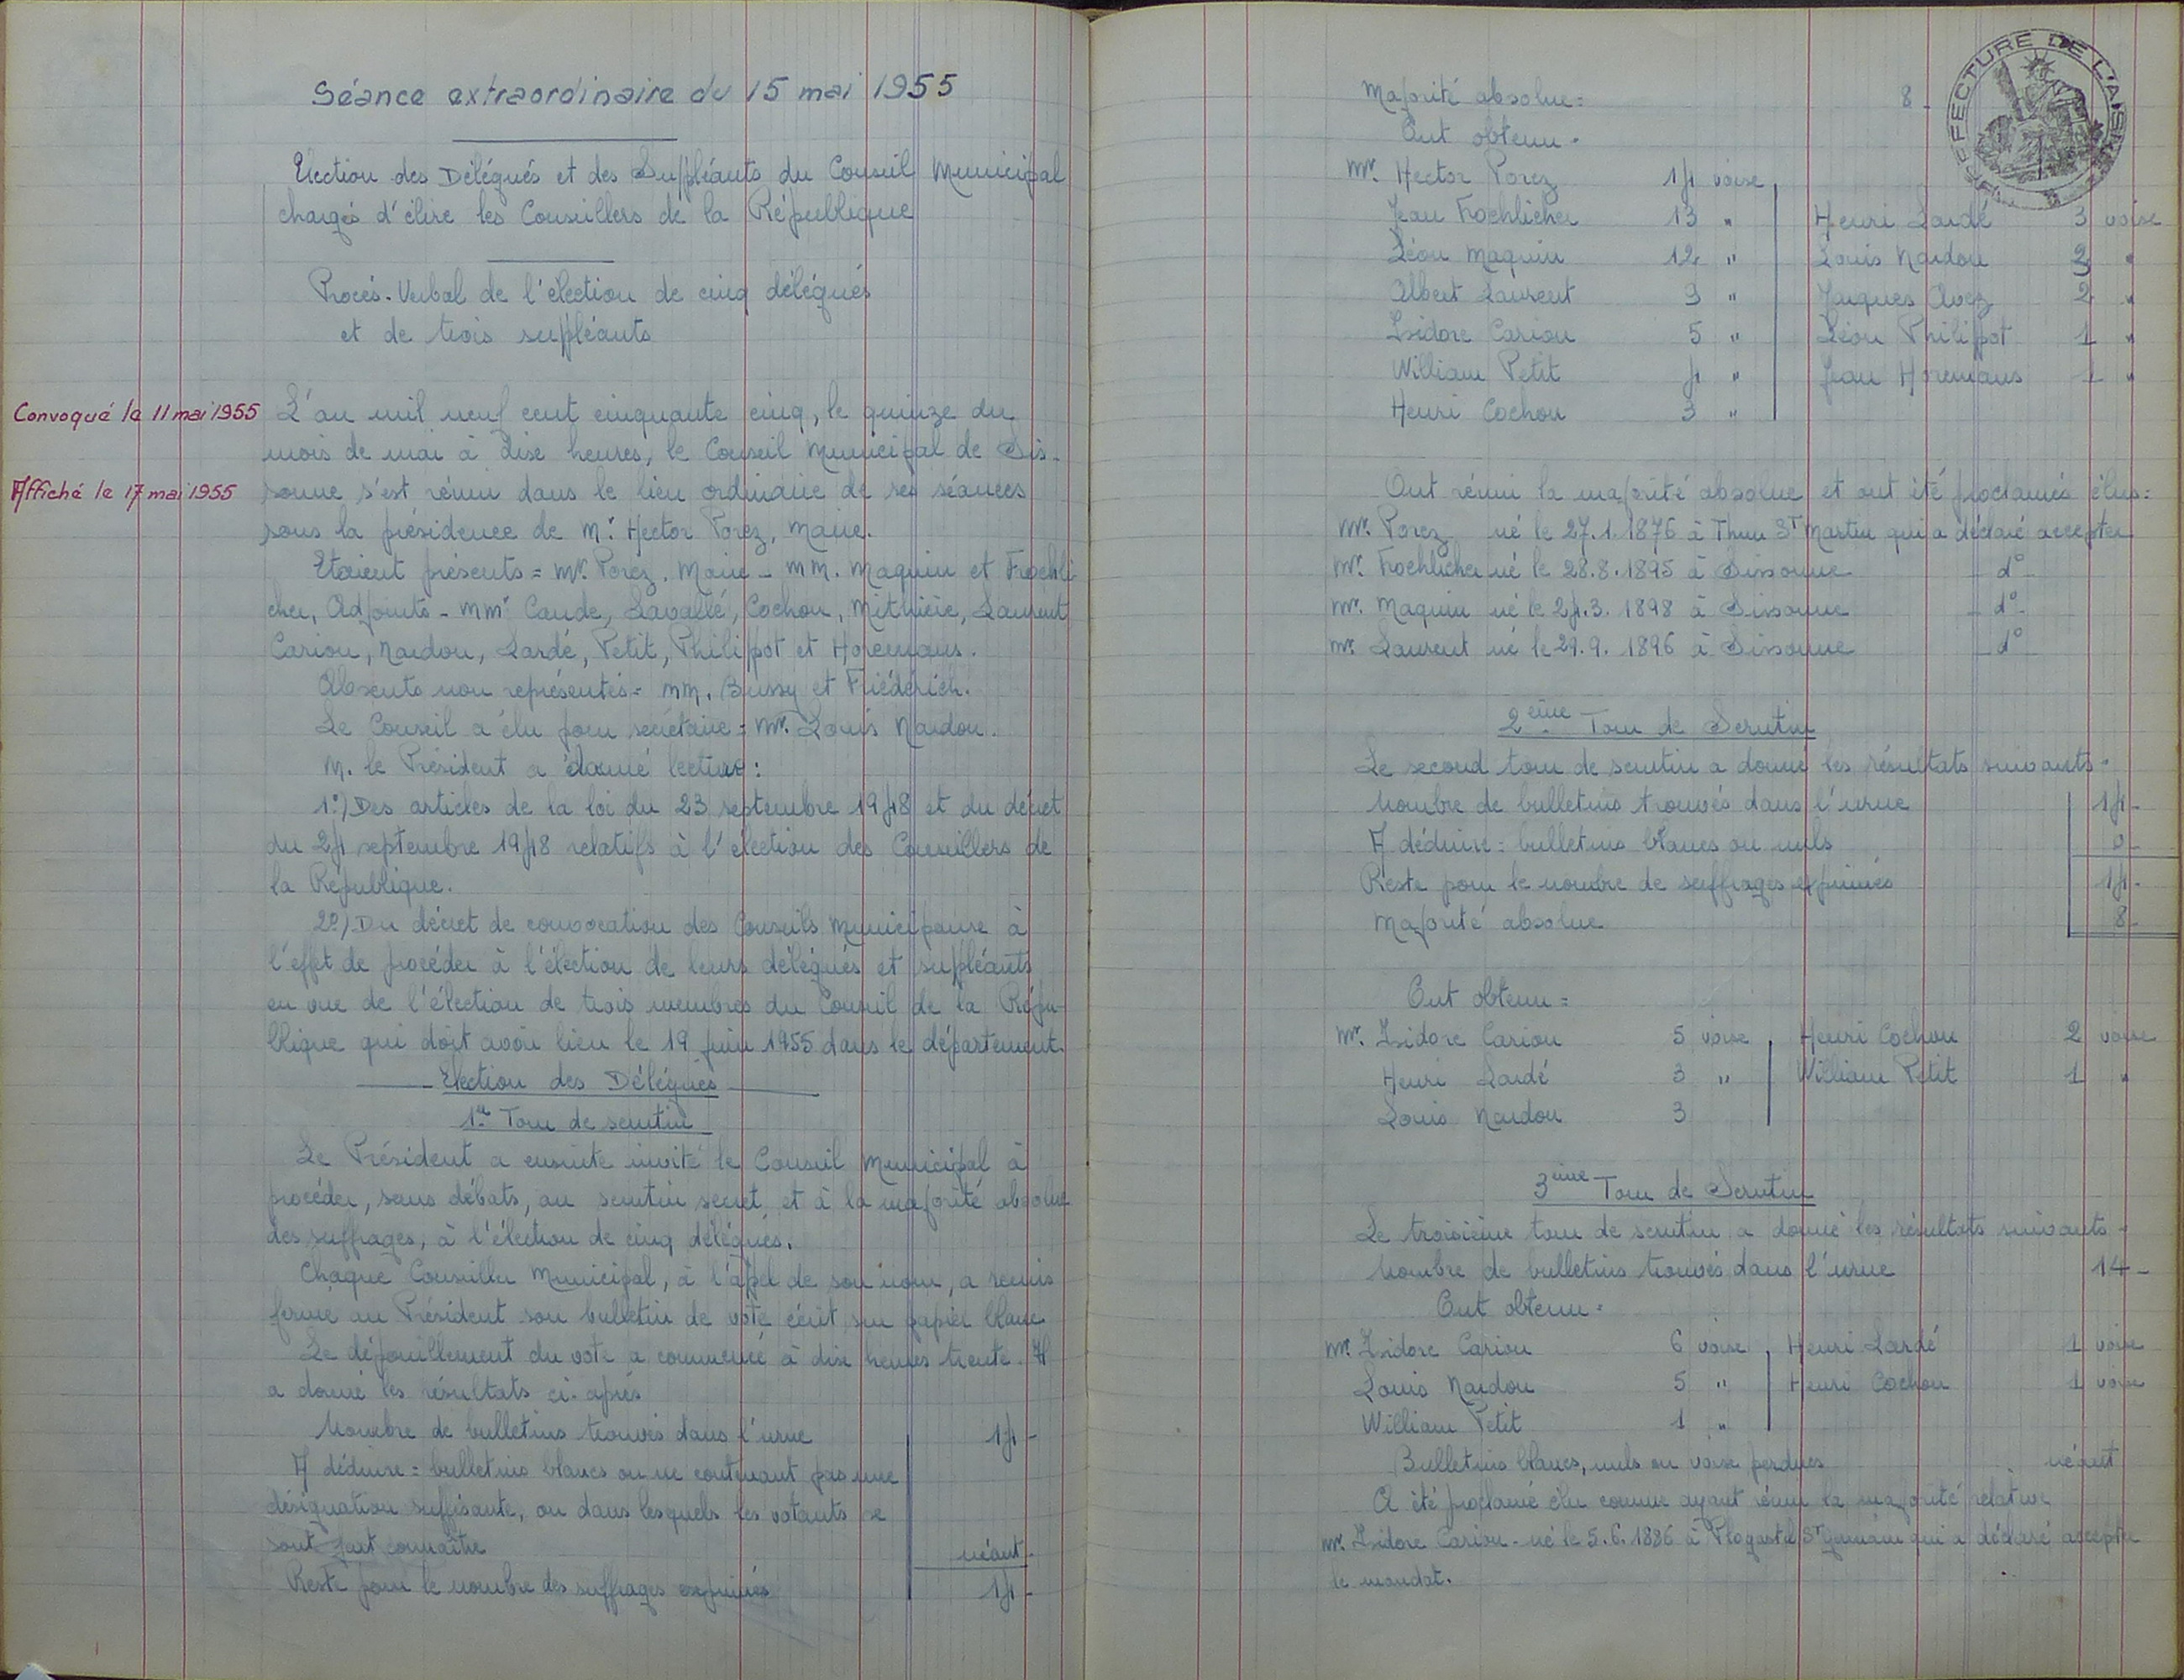 Séance extraordinaire du 15 mai 1955
Election des Délégués et des Suppléants du Conseil Municipal
chargés d'élire les Conseillers de la République
Procés-Verbal de l'élection de cinq délégués
et de trois suppléants
Convoqué le 11 mai 1955
L'an mil neuf cent cinquante cinq, le quinze du
mois de mai à dix heures, le Conseil Municipal de Sis-
Affiché le 17 mai 1955
sonne s'est réuni dans le lieu ordinaire de ses séances
sous la présidence de Mr Hector Porez, Maire.
Etaient présents = Mr. Porez, Maire - MM. Maquin et Froehli
cher, Adjoints - MMr Caude, Lavallé, Cochon, Mithière, Laurent
Cariou, Nardou, Lardé, Petit, Philipot et Horemans.
Absents non représentés = MM. Bussy et Friédérich.
Le Conseil a élu pour secrétaire = Mr. Louis Nardou.
M. le Président a donné lecture :
1°) Des articles de la loi du 23 septembre 1948 et du décret
du 24 septembre 1948 relatifs à l'élection des Conseillers de
la République.
2°) Du décret de convocation des Conseils Municipaux à
l'effet de procéder à l'élection de leurs délégués et suppléants
en vue de l'élection de trois membres du Conseil de la Répu-
blique qui doit avoir lieu le 19 juin 1955 dans le département.
Election des Délégués
1er Tour de scrutin
Le Président a ensuite invité le Conseil Municipal à
procéder, sans débats, au scrutin secret et à la majorité absolue
des suffrages, à l'élection de cinq délégués.
Chaque Conseiller Municipal, à l'apel de son nom, a remis
fermé au Président son bulletin de vote écrit sur papier blanc
Le dépouillement du vote a commencé à dix heures trente. Il
a donné les résultats ci-après
Nombre de bulletins trouvés dans l'urne 14 -
A déduire = bulletins blancs ou ne contenant pas une
désignation suffisante, ou dans lesquels les votants se
sont fait connaître néant -
Reste pour le nombre des suffrages exprimés 14 -
PREFECTURE DE L'AISNE
Majorité absolue = 8 -
Ont obtenu =
Mr. Hector Porez 14 voix
Jean Froehlicher 13 " Henri Lardé 3 voix
Léon Maquin 12 " Louis Nardou 2 "
Albert Laurent 9 " Jacques Avez 2 "
Isidore Cariou 5 " Léon Philipot 1 "
William Petit 4 " Jean Horemans 1 "
Henri Cochon 3 "
Ont réuni la majorité absolue et ont été proclamés élus :
Mr. Porez né le 27.1.1876 à Thun St Martin qui a déclaré accepter
Mr. Froehlicher né le 28.8.1895 à Sissonne - d° -
Mr. Maquin né le 24.3.1898 à Sissonne - d° -
Mr. Laurent né le 29.9.1896 à Sissonne - d° -
2ème Tour de Scrutin
Le second tour de scrutin a donné les résultats suivants =
Nombre de bulletins trouvés dans l'urne 14 -
A déduire = bulletins blancs ou nuls 0 -
Reste pour le nombre de suffrages exprimés 14 -
Majorité absolue 8 -
Ont obtenu =
Mr. Isidore Cariou 5 voix Henri Cochon 2 voix
Henri Lardé 3 " William Petit 1 "
Louis Nardou 3
3ème Tour de Scrutin
Le troisième tour de scrutin a donné les résultats suivants =
Nombre de bulletins trouvés dans l'urne 14 -
Ont obtenu =
Mr. Isidore Cariou 6 voix Henri Lardé 1 voix
Louis Nardou 5 " Henri Cochon 1 voix
William Petit 1 "
Bulletins blancs, nuls ou voix perdues néant
A été proclamé élu comme ayant réuni la majorité relative
Mr. Isidore Cariou - né le 5.6.1886 à Plogastel St Germain qui a déclaré accepter
le mandat.